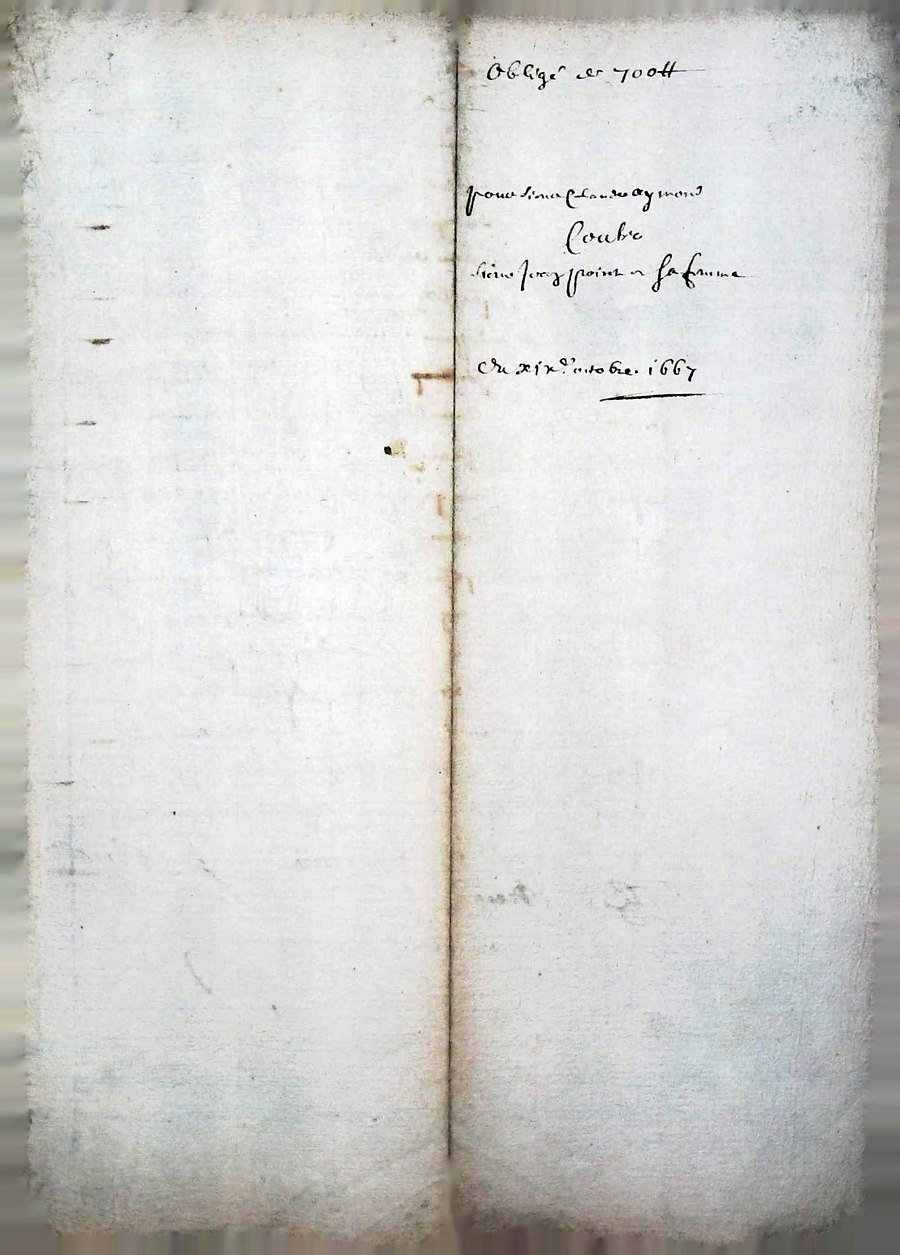 Obligé de 700 ₶
pour sieur Claude Aymond
Contre
sieur point et sa femme
Du xixe. octobre. 1667